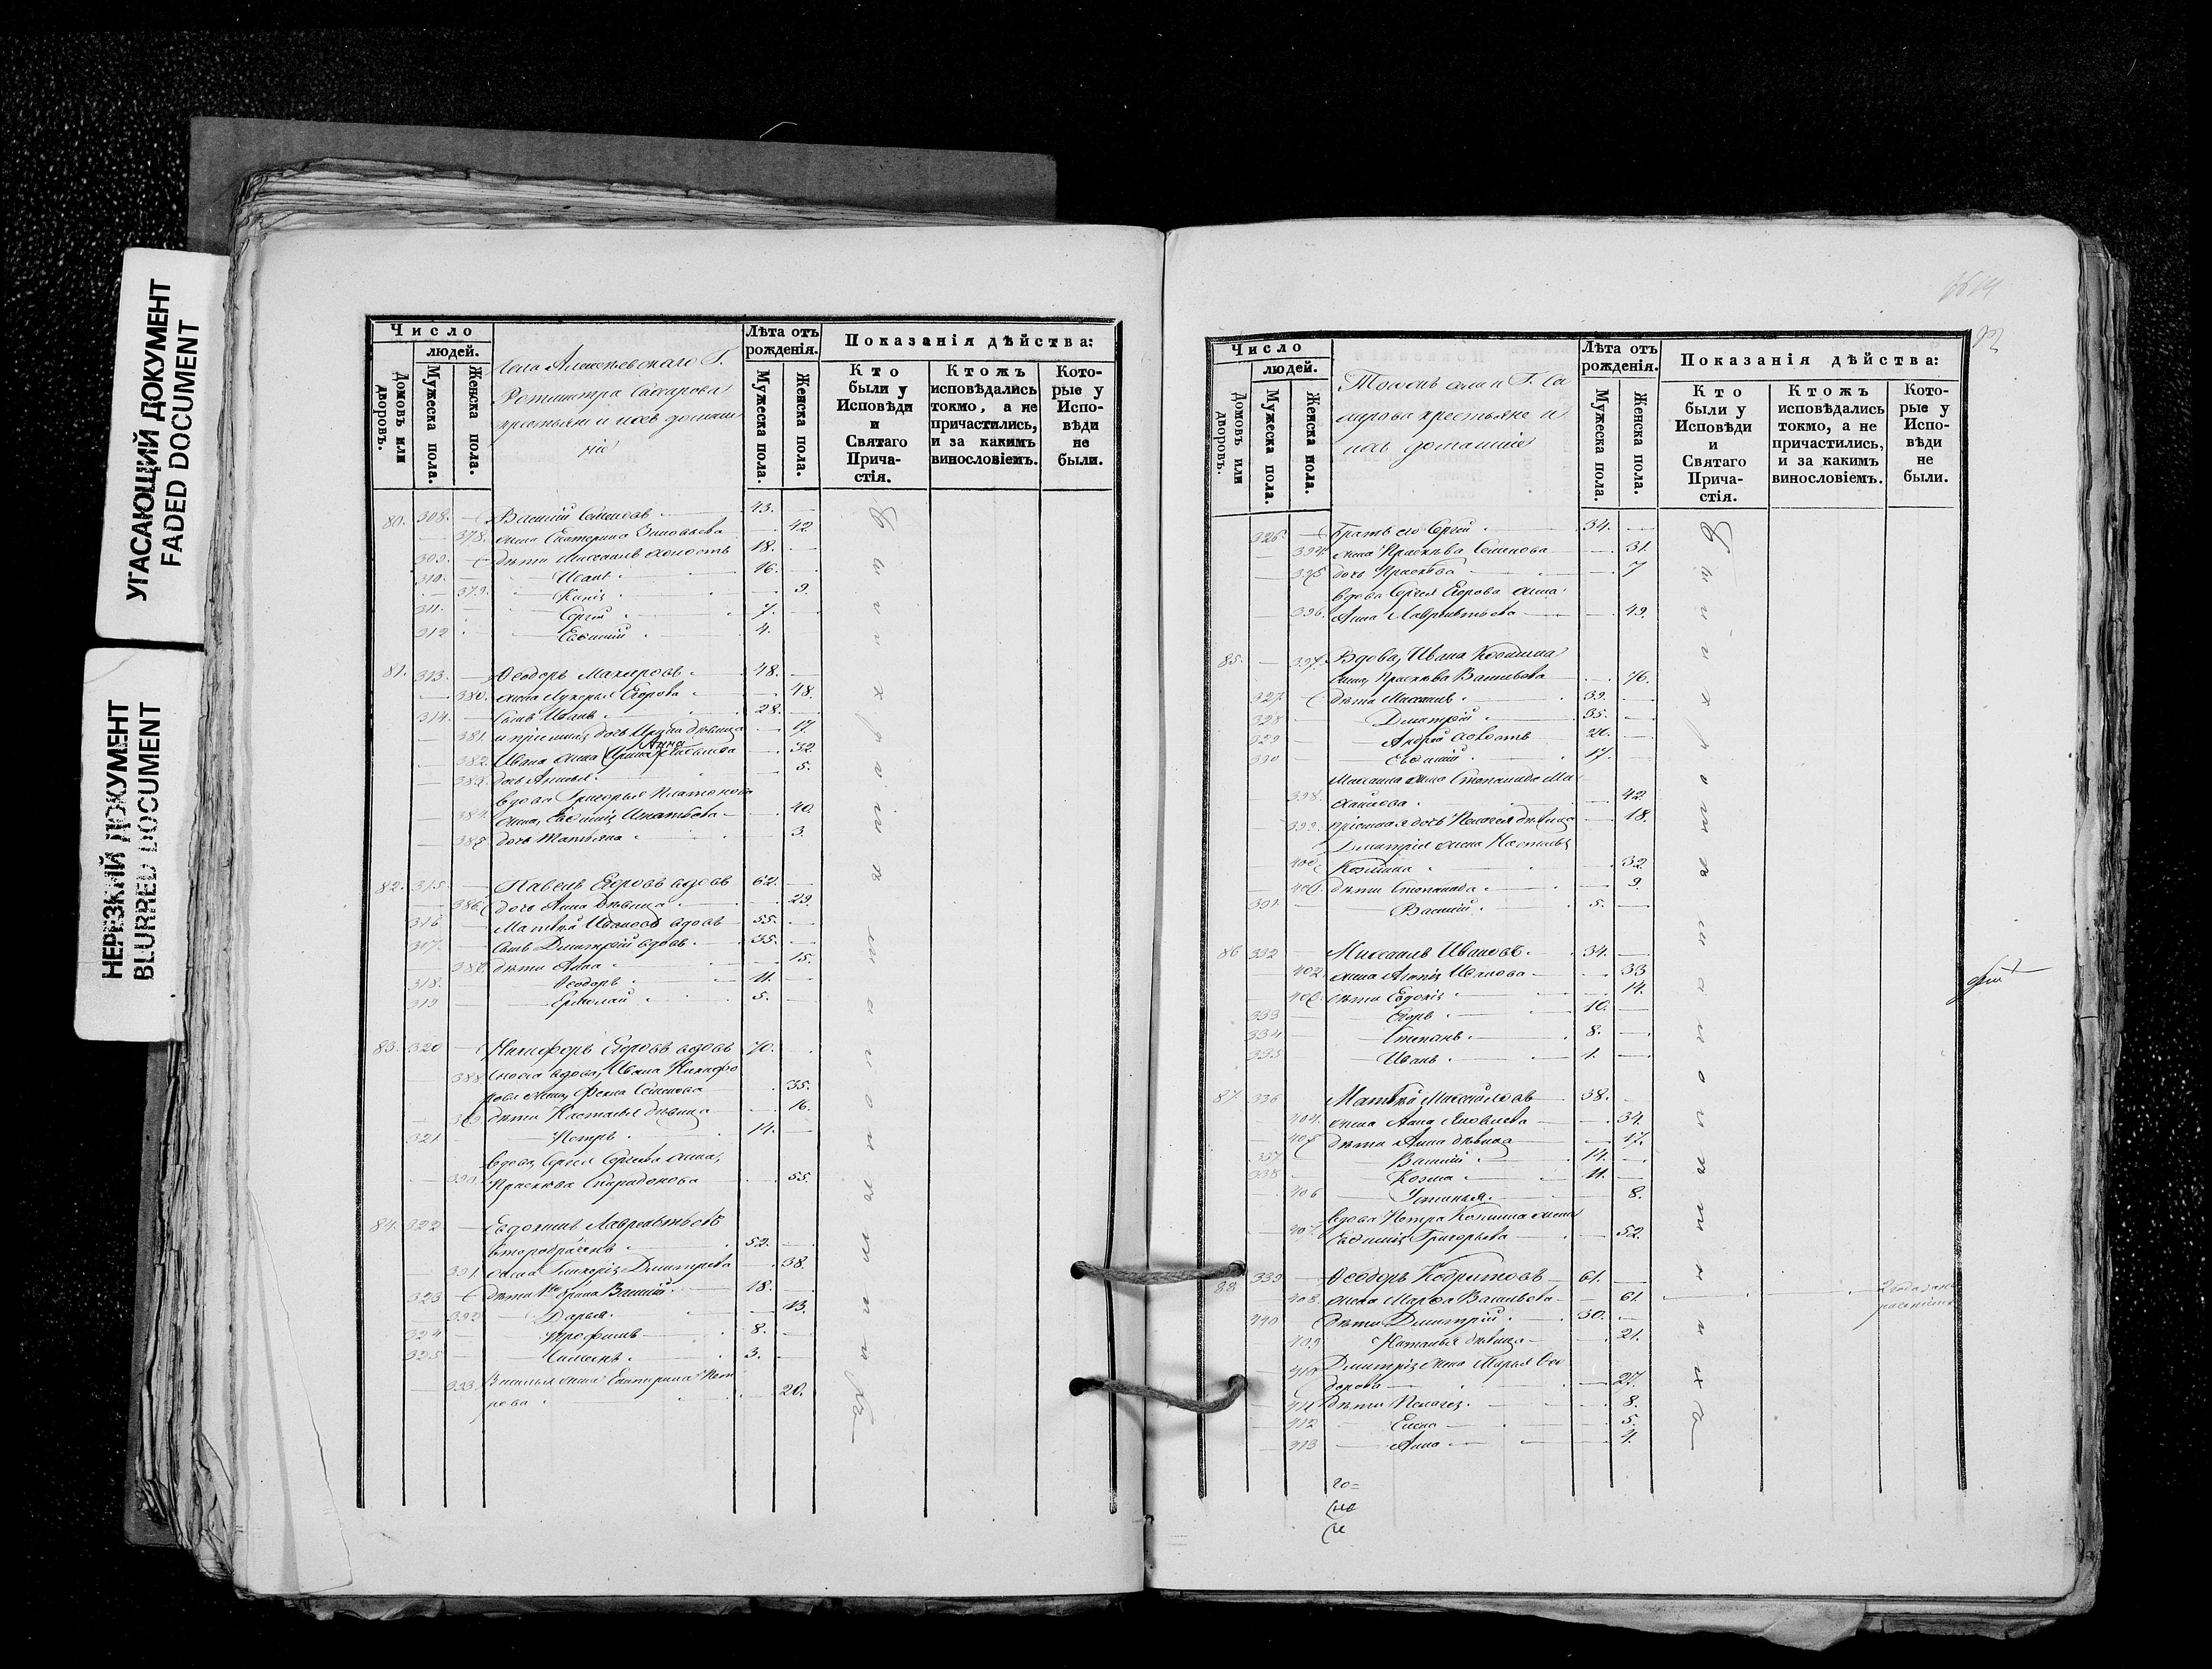 УГАСАЮЩИЙ ДОКУМЕНТ
FADED DOCUMENT
НЕРЕЗКИЙ ДОКУМЕНТ
BLURRED DOCUMENT
Число
людей.
Домовъ или дворовъ.
Мужеска пола.
Женска пола.
Села Г.
Ротмистра
крестьяне и ихъ домаш
ніе
Лѣта отъ рожденія.
Мужеска пола.
Женска пола.
Показанія дѣйства:
Кто были у Исповѣди и Святаго Прича-стія.
Ктожъ исповѣдались токмо, а не причастились, и за какимъ винословіемъ.
Кото-рые у Испо-вѣди не были.
80. 308. Василій 43.
378. жена Екатерина Зиновьева 42
309. дѣти Михаилъ холостъ 18.
310. Иванъ 16.
379. 9.
311. Сергей 7.
312 Евѳимій 4.
81. 313. Ѳеодоръ Макаровъ 48.
380. жена Лукерья Егорова 48.
314. сынъ Иванъ 28.
381. и пріемная дочь дѣвица 17.
Анна
382. Ивана жена 32.
383. дочь 5.
вдова Григорья Платонова
384. жена Евѳимія Игнатьева 40.
385. дочь Татьяна 3.
82. 315. Павелъ Егоровъ вдовъ 62.
386. дочь Анна дѣвица 29.
316 Матвѣй Ивановъ вдовъ 55.
317. сынъ Дмитрій вдовъ 35.
387. дѣти Анна 15.
318. Ѳеодоръ 11.
319 Ермолай 5.
83. 320 Никифоръ Егоровъ вдовъ 70.
388. сноха вдова, Ивана Никифо
рова жена Фекла Семенова 35.
389. дѣти Наталья дѣвица 16.
321 Петръ 14.
вдова, Сергея Сергеева жена,
390. Прасковья Спиридонова 55.
84. 322 Евдокимъ Лаврентьевъ
второбраченъ 52.
391. жена Гликерія Дмитріева 38.
323 дѣти 1го брака Василій 18.
392 Дарья 13.
324 Трофимъ 8.
325 3.
393. Василья жена Екатерина Пет
рова 20.
Число
людей.
Домовъ или дворовъ.
Мужеска пола.
Женска пола.
Тогожъ села и Г. Са
харова крестьяне и
ихъ домашніе
Лѣта отъ рожденія.
Мужеска пола.
Женска пола.
Показанія дѣйства:
Кто были у Исповѣди и Святаго Прича-стія.
Ктожъ исповѣдались токмо, а не причастились, и за какимъ винословіемъ.
Кото-рые у Испо-вѣди не были.
326. братъ его Сергей 34.
394. жена Прасковья Семенова 31.
395 дочь Прасковья 7
вдова Сергея Егорова жена
396. Анна Лаврентьева 49.
85. 397. Вдова, Ивана Козмина
жена, Прасковья Васильева 76.
327. дѣти Михаилъ 39.
328 Дмитрій 35.
329 Андрей холостъ 20.
330 Евѳимій 17.
Михаила жена Степанида Ми
398. хайлова 42.
399. пріемная дочь Пелагея дѣвица 18.
Дмитрія жена Наталья
400. Козмина 32.
401. дѣти Степанида 9.
331. Василій 5.
86 332 Михаилъ Ивановъ 34.
402 жена Агапія Иванова 33
403. дѣти Евдокія 14.
333 Егоръ 10.
334 Степанъ 8.
335 Иванъ 1.
87. 336 Матвѣй Михайловъ 38.
404. жена Анна Яковлева 34.
405 дѣти Анна дѣвица 17.
337 Василій 14.
338 Козма 11.
406 Устинья 8.
вдова Петра Козмина жена
407. Евѳимія Григорьева 52.
88 339 Ѳеодоръ 61.
408. жена Марѳа Васильева 61.
340 дѣти Дмитрій 30.
409 Наталья дѣвица 21.
410 Дмитрія жена Марья Ѳео
дорова 27.
411 дѣти Пелагея 8.
412 Елена 5.
413 Анна 4.